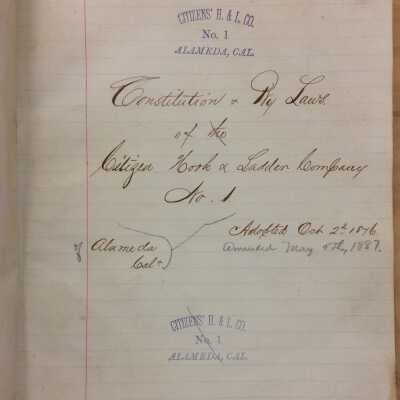 CITIZENS' H. & L. CO.
No. 1
ALAMEDA, CAL.
Constitution & By Laws
of the
Citizen Hook & Ladder Company
No. 1
Adopted Oct 2d 1876.
of Alameda Amended May 5th, 1887.
Cala
CITIZENS' H. & L. CO.
No 1
ALAMEDA, CAL.